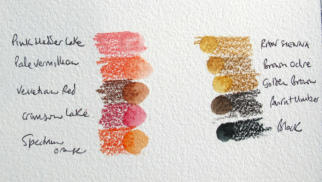 Pink Madder Lake
Pale Vermillion
Venetian Red
Crimson Lake
Spectrum
orange
Raw Sienna
Brown Ochre
Golden Brown
Burnt Umber
Black